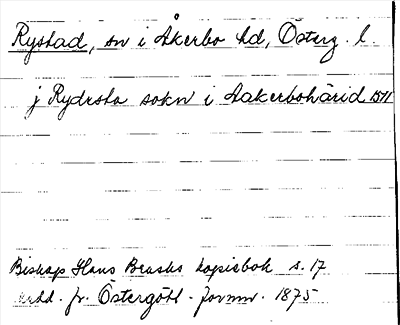 Rystad, sn i Åkerbo hd, Österg. l
j Rydsta sokn i Aakerbohärid 1511
Biskap Hans Brasks kopiebok s. 17
fr. Östergötl. fornm. 1875